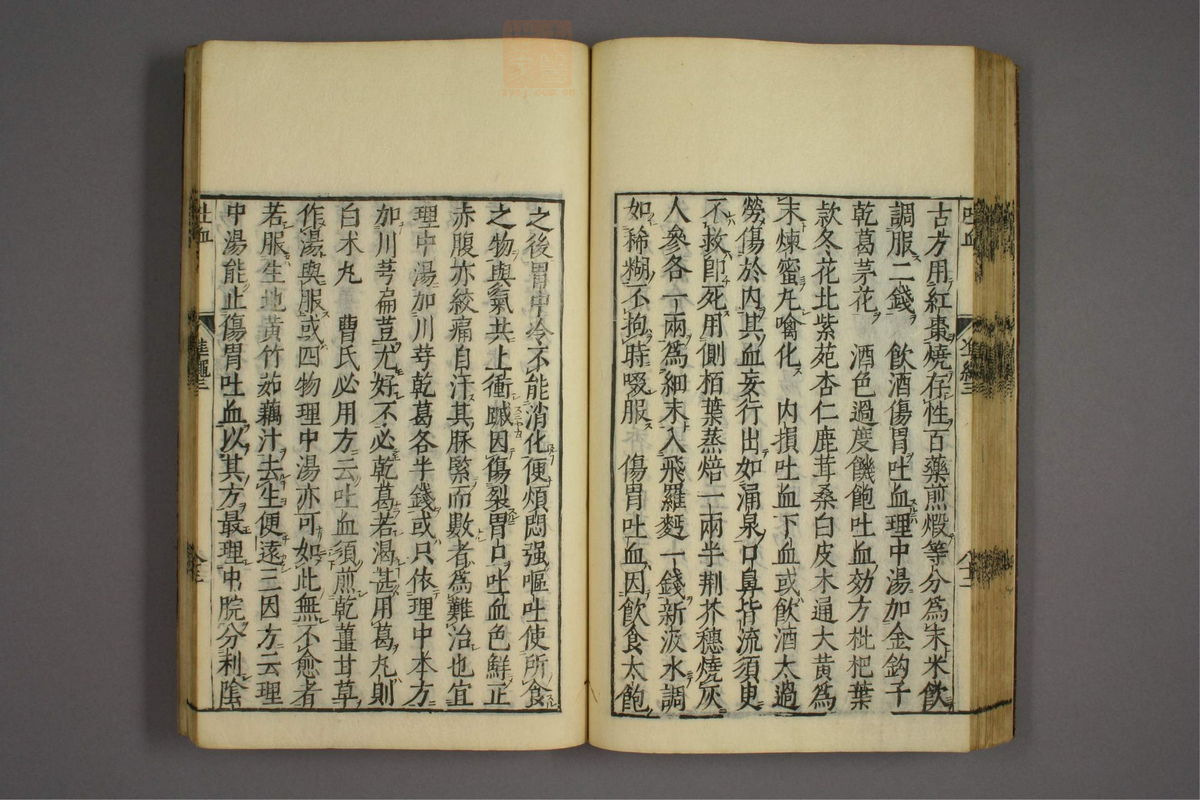 古方用紅棗燒存性百藥煎煅等分為末米飲
調服二錢　飲酒傷胃吐血理中湯加金鈎子
乾葛茅花　酒色過度饑飽吐血効方枇杷葉
款冬花北紫菀杏仁鹿茸桑白皮木通大黄為
末煉蜜丸噙化　内損吐血下血或飲酒太過
勞傷於内其血妄行出如涌泉口鼻皆流須臾
不救即死用側栢葉蒸焙一兩半荆芥穗燒灰
人參各一兩為細末入飛羅麪一錢新汲水調
如稀糊不拘時啜服　傷胃吐血因飲食太飽
之後胃中冷不能消化便煩悶强嘔吐使所食
之物與氣共上衝蹴因傷裂胃口吐血色鮮正
赤腹亦絞痛自汗其脉緊而數者為難治也宜
理中湯加川芎乾葛各半錢或只依理中本方
加川芎扁荳尤好不必乾葛若渴甚用葛丸則
白术丸　曹氏必用方云吐血須煎乾薑甘草
作湯與服或四物理中湯亦可如此無不愈者
若服生地黄竹茹藕汁去生便遠三因方云理
中湯能止傷胃吐血以其方最理中脘分利陰
吐血
準繩三